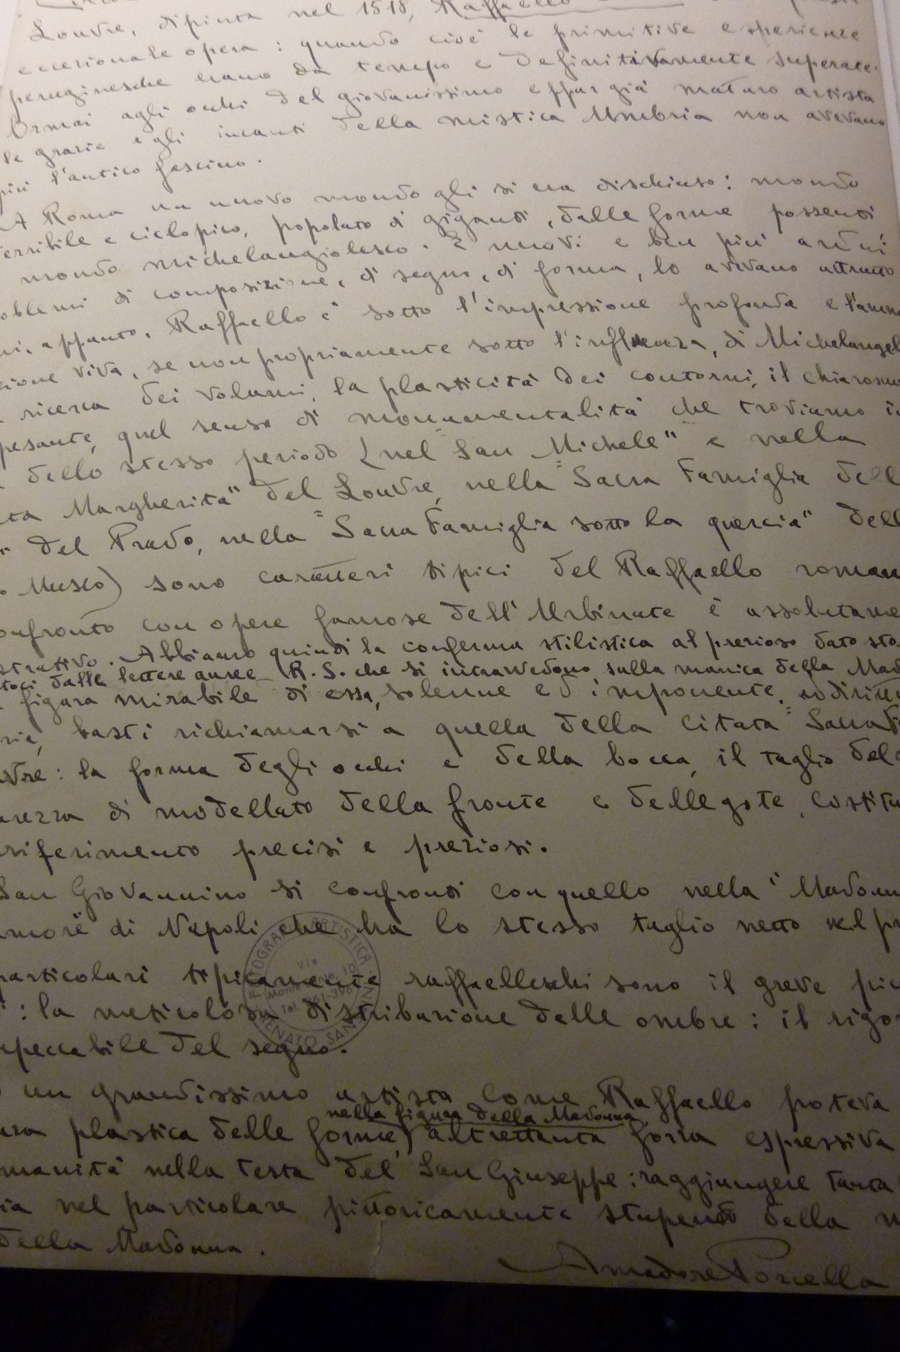 Louvre, dipinta nel 1518, Raffaello
eccezionale opera: quando cioè le primitive esperienze
peruginesche erano da tempo e definitivamente superate.
Ormai agli occhi del giovanissimo eppur già maturo artista
le grazie e gli incanti della mistica Umbria non avevano
più l'antico fascino.
A Roma un nuovo mondo gli si era dischiuso: mondo
terribile e ciclopico, popolato di giganti, dalle forme possenti
mondo michelangiolesco. E nuovi e ben più ardui
oblemi di composizione, di segno, di forma, lo avevano attratto
ui, appunto, Raffaello è sotto l'impressione profonda e l'amm
zione viva, se non propriamente sotto l'influenza, di Michelangel
ricerca dei volumi, la plasticità dei contorni, il chiaroscu
pesante, quel senso di monumentalità che troviamo i
dello stesso periodo (nel "San Michele" e nella
ta Margherita" del Louvre, nella "Sacra Famiglia dell
" del Prado, nella "Sacra Famiglia sotto la quercia" dell
o Museo) sono caratteri tipici del Raffaello roman
onfronto con opere famose dell'Urbinate è assolutame
strativo. Abbiamo quindi la conferma stilistica al prezioso dato sto
toci dalle lettere auree R. S. che si intravedono sulla manica della Mad
figura mirabile di essa, solenne ed imponente, addiritt
ria, basti richiamarsi a quella della citata "Sacra F
uvre: la forma degli occhi e della bocca, il taglio del
rezza di modellato della fronte e delle gote, costitu
riferimento precisi e preziosi.
San Giovannino si confronti con quello nella "Madonn
amore" di Napoli che ha lo stesso taglio netto nel pr
particolari tipicamente raffaelleschi sono il greve pie
: la meticolosa distribuzione delle ombre: il rigo
mpeccabile del segno.
FOTOGRAFIA ARTISTICA
Via
RENATO SAN
o un grandissimo artista come Raffaello poteva
nella figura della Madonna
plastica delle forme) altrettanta forza espressiva
manità nella testa del San Giuseppe: raggiungere tanta
ia nel particolare pittoricamente stupendo della m
della Madonna.
Amadore Porcella